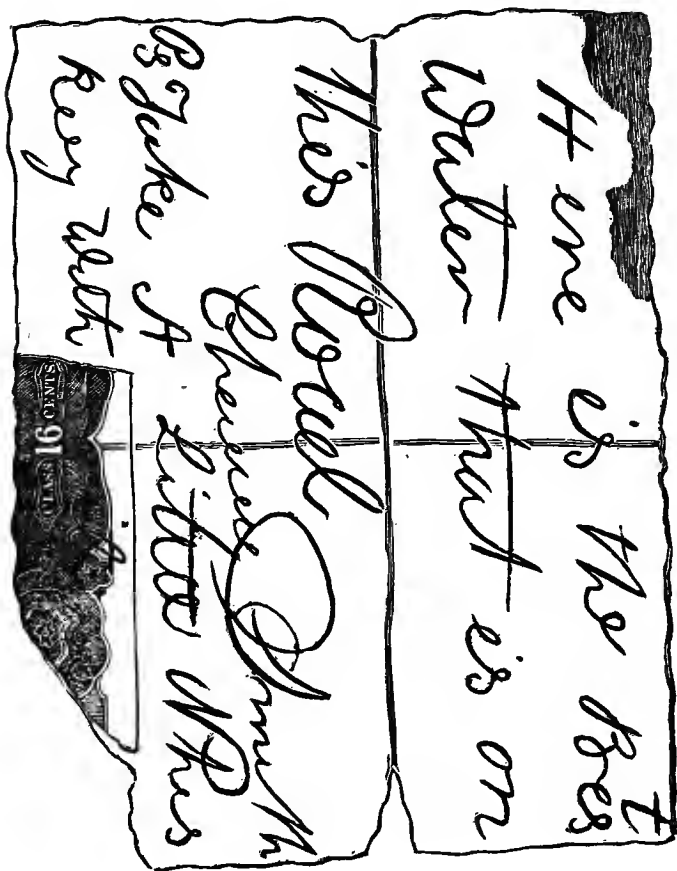 Here is the Best
Water that is on
this Road
Smith
Ps Take A Little Whis
Key With
CLASS 16 CENTS